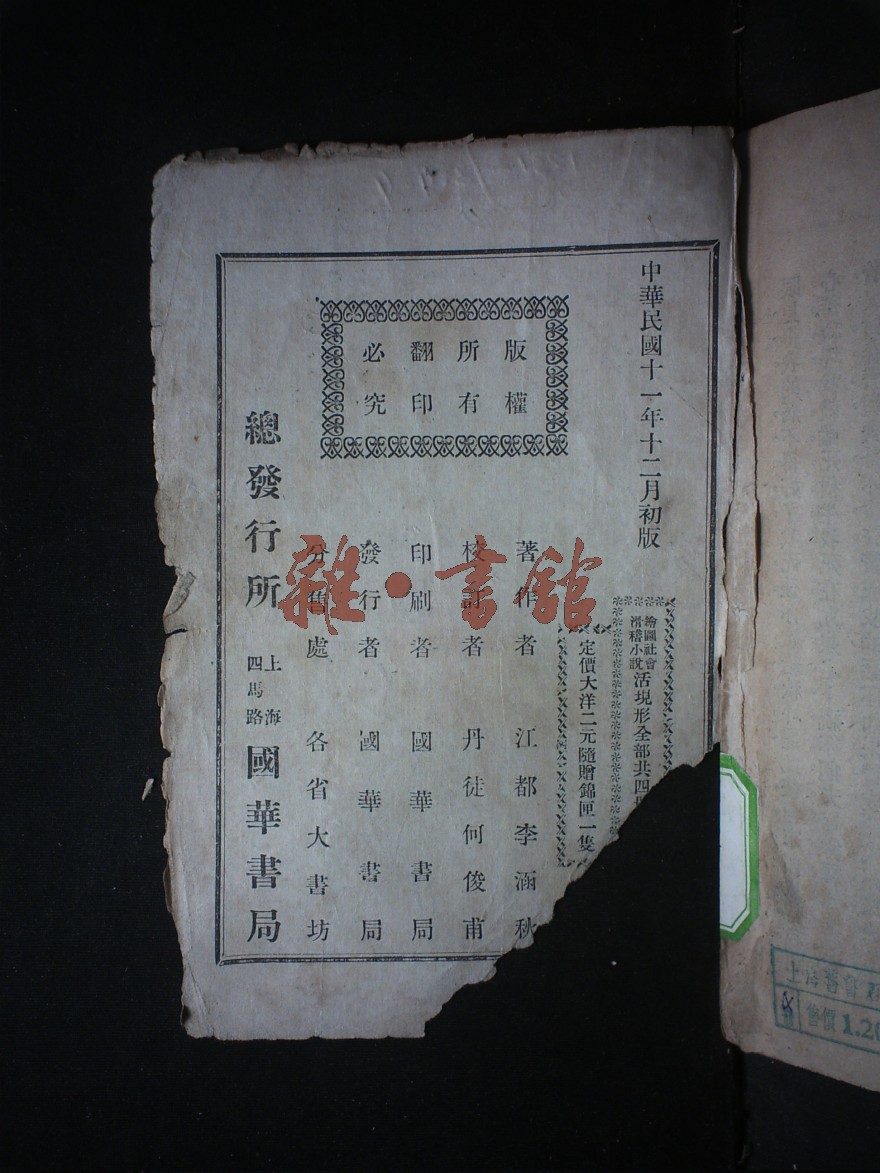 中華民國十一年十二月初版
繪圖社會
滑稽小說
活現形全部共四
定價大洋二元隨贈錦匣一隻
版權
所有
翻印
必究
著作者 江都李涵秋
校訂者 丹徒何俊甫
印刷者 國華書局
發行者 國華書局
分售處 各省大書坊
總發行所 上海四馬路 國華書局
雜·書館
上海舊書
售價1.20